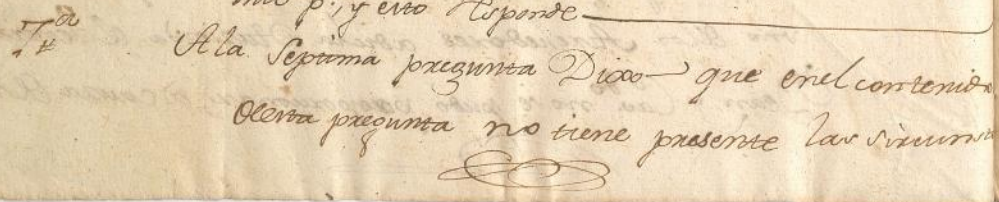 p.r, y esto responde
7.a
A la septima pregunta Dixo que en el contenido
desta pregunta no tiene presente las sircunst